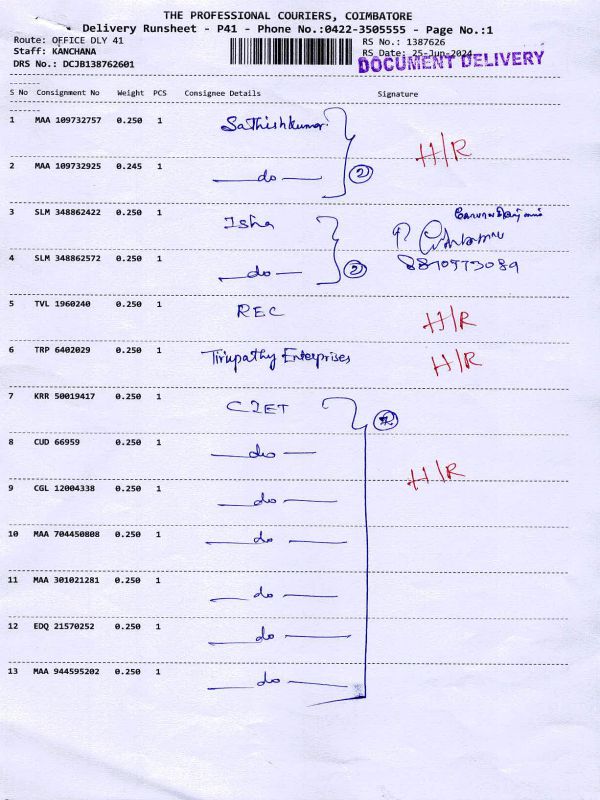 THE PROFESSIONAL COURIERS, COIMBATORE
Delivery Runsheet - P41 - Phone No.:0422-3505555 - Page No.:1
Route: OFFICE DLY 41
RS No.: 1387626
Staff: KANCHANA
RS Date: 25-Jun-2024
DRS No.: DCJB138762601
DOCUMENT DELIVERY
S No Consignment No Weight PCS Consignee Details Signature
1 MAA 109732757 0.250 1 Sathishkumar H/R
2 MAA 109732925 0.245 1 do 2
3 SLM 348862422 0.250 1 Isha
4 SLM 348862572 0.250 1 do 2
5 TVL 1960240 0.250 1 REC H/R
6 TRP 6402029 0.250 1 Tirupathy Enterprises H/R
7 KRR 50019417 0.250 1 CIET
8 CUD 66959 0.250 1 do H/R
9 CGL 12004338 0.250 1 do
10 MAA 704450808 0.250 1 do
11 MAA 301021281 0.250 1 do
12 EDQ 21570252 0.250 1 do
13 MAA 944595202 0.250 1 do